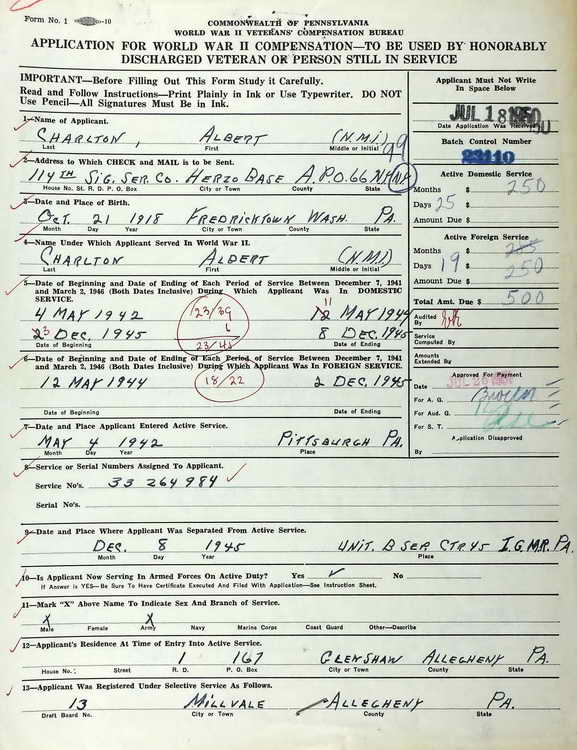 Form No. 1 -10
COMMONWEALTH OF PENNSYLVANIA
WORLD WAR II VETERANS' COMPENSATION BUREAU
APPLICATION FOR WORLD WAR II COMPENSATION—TO BE USED BY HONORABLY
DISCHARGED VETERAN OR PERSON STILL IN SERVICE
IMPORTANT—Before Filling Out This Form Study it Carefully.
Read and Follow Instructions—Print Plainly in Ink or Use Typewriter. DO NOT
Use Pencil—All Signatures Must Be in Ink.
Applicant Must Not Write
In Space Below
JUL 18 1950
Date Application Was Received
Batch Control Number
23110
1—Name of Applicant.
CHARLTON, ALBERT (N.M.I.) 99
Last First Middle or Initial
2—Address to Which CHECK and MAIL is to be Sent.
114TH SIG. SER. CO. HERZO BASE A.P.O. 66 N.Y. N.Y.
House No. St. R. D. P. O. Box City or Town County State
3—Date and Place of Birth.
OCT. 21 1918 FREDRICKTOWN WASH. PA.
Month Day Year City or Town County State
4—Name Under Which Applicant Served In World War II.
CHARLTON ALBERT (N.M.I)
Last First Middle or Initial
Active Domestic Service
Months $ 250
Days 25 $
Amount Due $
Active Foreign Service
Months $ 285
Days 19 $ 250
Amount Due $
Total Amt. Due $ 500
Audited By
Service Computed By
Amounts Extended By
Approved For Payment
Date JUL 26
For A. G.
For Aud. G.
For S. T.
Application Disapproved
By
5—Date of Beginning and Date of Ending of Each Period of Service Between December 7, 1941
and March 2, 1946 (Both Dates Inclusive) During Which Applicant Was In DOMESTIC
SERVICE.
4 MAY 1942 23/39 11 12 MAY 1944
6
23 DEC. 1945 23/45 8 DEC. 1945
Date of Beginning Date of Ending
6—Date of Beginning and Date of Ending of Each Period of Service Between December 7, 1941
and March 2, 1946 (Both Dates Inclusive) During Which Applicant Was In FOREIGN SERVICE.
12 MAY 1944 18/22 2 DEC. 1945
Date of Beginning Date of Ending
7—Date and Place Applicant Entered Active Service.
MAY 4 1942 PITTSBURGH PA.
Month Day Year Place
8—Service or Serial Numbers Assigned To Applicant.
Service No's. 33 264 984
Serial No's.
9—Date and Place Where Applicant Was Separated From Active Service.
DEC. 8 1945 UNIT. B SEP. CTR 45 I.G.M.R. PA.
Month Day Year Place
10—Is Applicant Now Serving In Armed Forces On Active Duty? Yes ✓ No
If Answer is YES—Be Sure To Have Certificate Executed And Filed With Application—See Instruction Sheet.
11—Mark "X" Above Name To Indicate Sex And Branch of Service.
X X
Male Female Army Navy Marine Corps Coast Guard Other—Describe
12—Applicant's Residence At Time of Entry Into Active Service.
1 167 GLENSHAW ALLEGHENY PA.
House No. Street R. D. P. O. Box City or Town County State
13—Applicant Was Registered Under Selective Service As Follows.
13 MILLVALE ALLEGHENY PA.
Draft Board No. City or Town County State